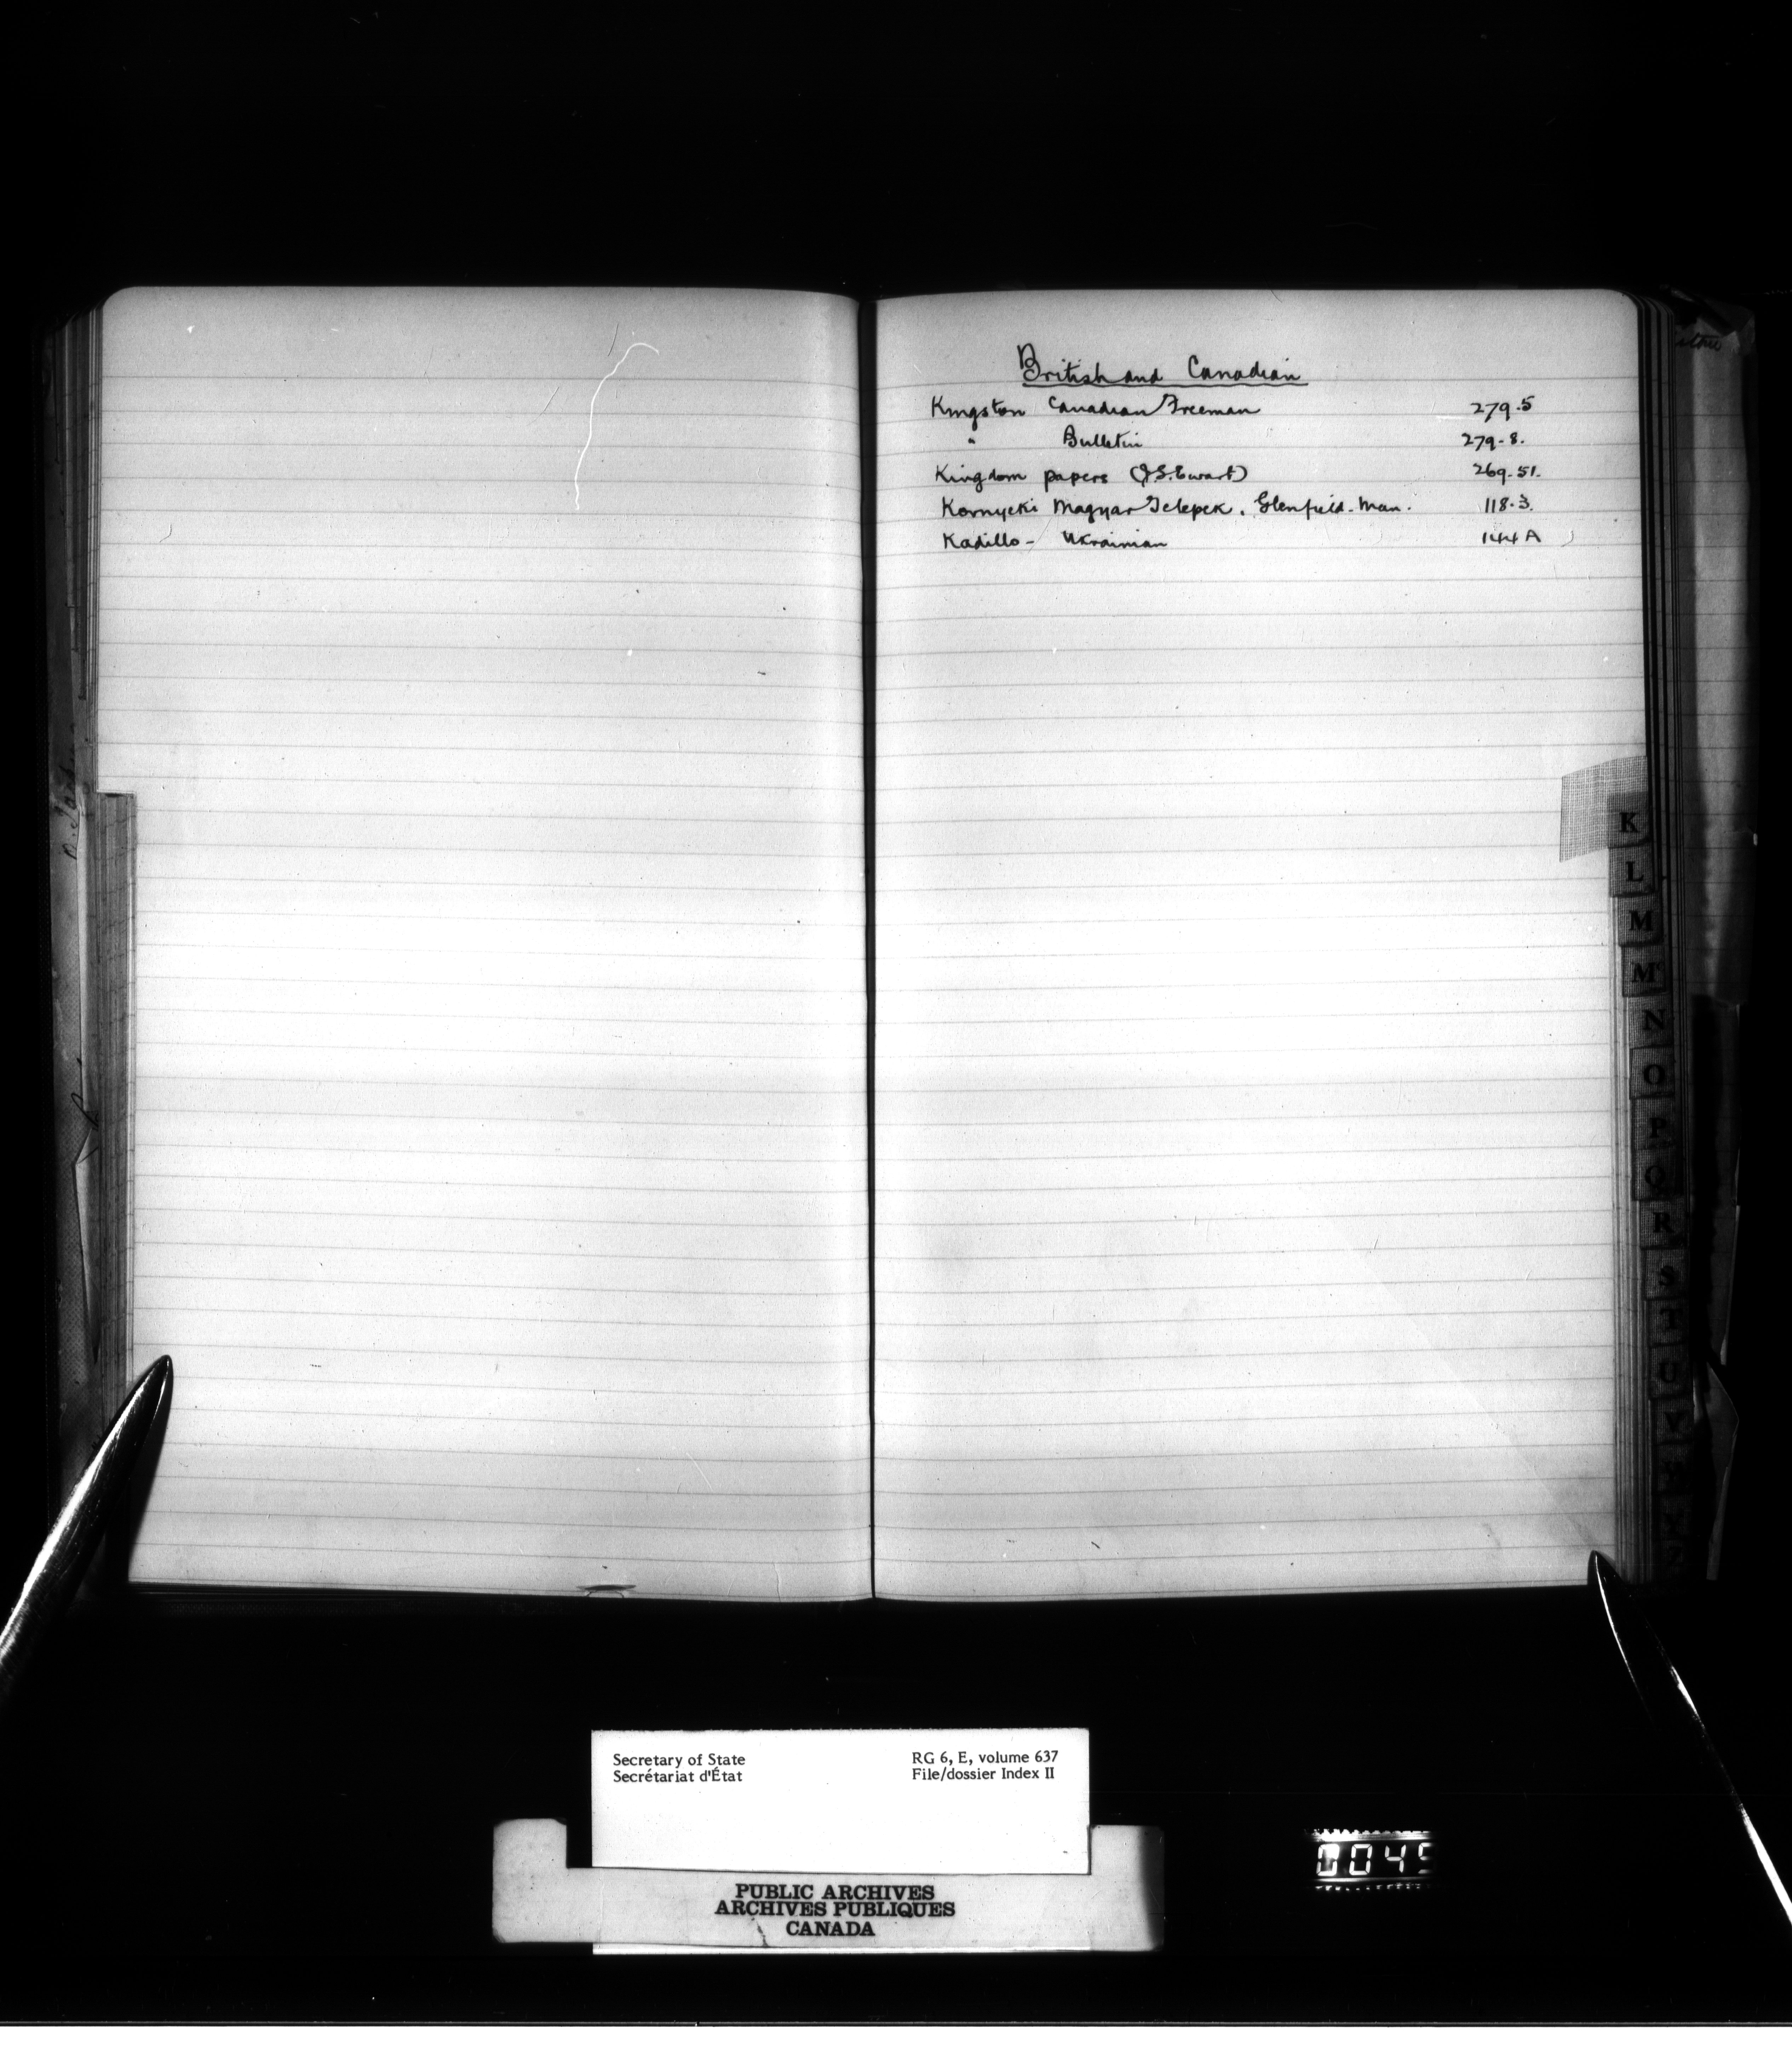 British and Canadian
Kingston Canadian Freeman 279.5
" Bulletin 279-8.
Kingdom papers (J.S. Ewart) 269-51.
Kornyeki Magyar Telepek, Glenfield-Man. 118.3.
Kadillo- Ukrainian 144 A
K
L
M
Mc
N
O
P
Q
R
S
T
U
V
Secretary of State RG 6, E, volume 637
Secrétariat d'État File/dossier Index II
PUBLIC ARCHIVES
ARCHIVES PUBLIQUES
CANADA
0045